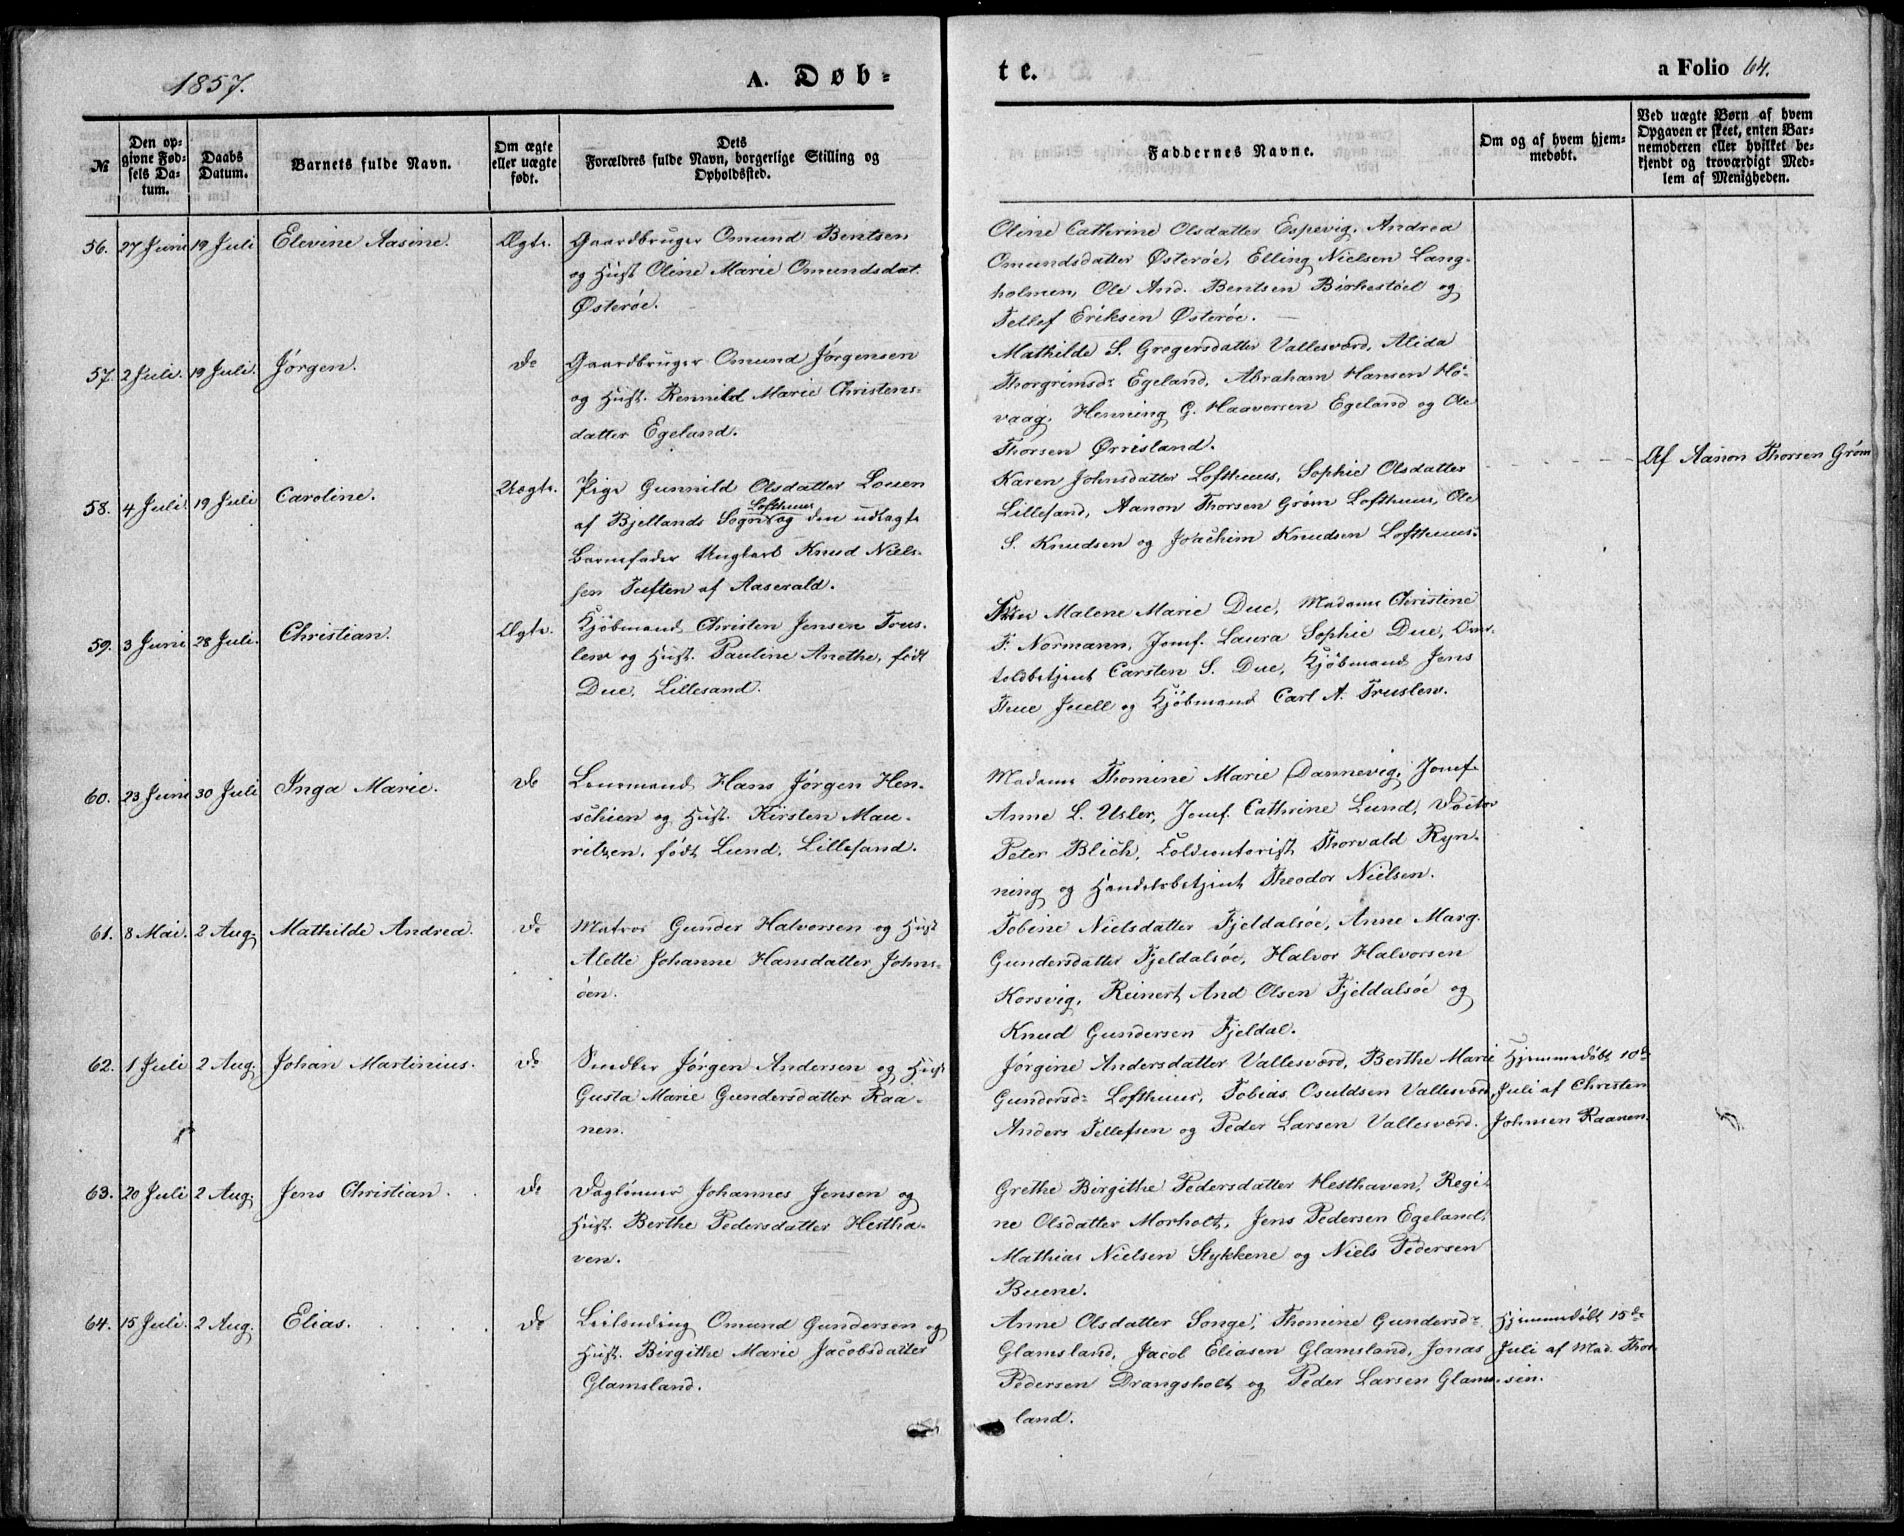 1857.
A. Døb-
te.
a Folio 64.
№
Den op-
givne Fød-
sels Da-
tum.
Daabs
Datum.
Barnets fulde Navn.
Om ægte
eller uægte
født.
Dets
Forældres fulde Navn, borgerlige Stilling og
Opholdssted.
Faddernes Navne.
Om og af hvem hjem-
medøbt.
Ved uægte Børn af hvem
Opgaven er skeet, enten Bar-
nemoderen eller hvilket be-
kjendt og troværdigt Med-
lem af Menigheden.
56. 27 Juni 19 Juli Elevine Aasine. Ægte.
Gaardbruger Omund Bentsen
og Hust Oline Marie Omundsdat.
Østerøe.
Oline Cathrine Olsdatter Espevig, Andrea
Omundsdatter Østerøe, Elling Nielsen Lang-
holmen, Ole And. Bentsen Birkestöel og
Tellef Eriksen Østerøe.
57. 2 Juli. 19 Juli. Jørgen. do
Gaardbruger Omund Jørgensen
og Hust. Rennild Marie Christens-
datter Egeland.
Mathilde S. Gregersdatter Vallesværd, Alida
Thorgrimsdr Egeland, Abraham Hansen Hø-
vaag, Henning G. Haaversen Egeland og Ole
Thorsen Ørrisland.
58. 4 Juli. 19 Juli Caroline. Uægte.
Pige Gunnild Olsdatter Louen
af Bjellands Sogn Lofthuus og den udlagte
Barnefader Ungkarl Knud Niels-
sen Tuften af Aaserald.
Karen Johnsdatter Lofthuus, Sophie Olsdatter
Lillesand, Aanon Thorsen Grøm Lofthuus, Ole
S. Knudsen og Joachim Knudsen Lofthuus.
Af Aanon Thorsen Grøm
59. 3 Juni 28 Juli. Christian. Ægte.
Kjöbmand Christen Jensen Trus-
lew og Hust. Pauline Anethe, født
Due, Lillesand.
Malene Marie Due, Madame Christine
F. Normann, Jomf. Laura Sophie Due,
toldbetjent Carsten S. Due, Kjöbmand Jens
Thue Juell og Kjöbmand Carl A. Truslew.
60. 23 Juni 30 Juli Inga Marie. do
Lensmand Hans Jørgen Hen-
schien og Hust. Kirsten Mau-
ritzen, født Lund, Lillesand.
Madame Thomine Marie Dannevig, Jomf.
Anne L. Usler, Jomf. Cathrine Lund, Doctor
Peter Blich, Toldcontorist Thorvald Ryn-
ning og Handelsbetjent Theodor Nielsen.
61. 8 Mai. 2 Aug. Mathilde Andrea. do
Matros Gunder Halvorsen og Hust
Alette Johanne Hansdatter Johns-
öen.
Tobine Nielsdatter Fjeldalsöe, Anne Marg.
Gundersdatter Fjeldalsöe, Halvor Halvorsen
Korsvig, Reinert And Olsen Fjeldalsöe og
Knud Gundersen Fjeldal.
62. 1 Juli 2 Aug. Johan Martinius. do
Snedker Jørgen Andersen og Hust
Gusta Marie Gundersdatter Raa-
nen.
Jørgine Andersdatter Vallesværd, Berthe Marie
Gundersd: Lofthuus, Tobias Osuldsen Vallesværd,
Anders Tellefsen og Peder Larsen Vallesværd.
Hjemmedøbt 10de
Juli af Christen
Johnsen Raanen.
63. 20 Juli 2 Aug. Jens Christian. do
Daglønner Johannes Jensen og
Hust. Berthe Pedersdatter Hestha-
ven.
Grethe Birgithe Pedersdatter Hesthaven, Regi-
ne Olsdatter Morholt, Jens Pedersen Egeland,
Mathias Nielsen Stykkene og Niels Pedersen
Buene.
64. 15 Juli. 2 Aug. Elias. do
Leilænding Omund Gundersen og
Hust. Birgithe Marie Jacobsdatter
Glamsland.
Anne Olsdatter Songe, Thomine Gundersdr
Glamsland, Jacob Eliasen Glamsland, Jonas
Pedersen Drangsholt og Peder Larsen Glams-
land.
Hjemmedøbt 15de
Juli af Mad. Thor-
sen.